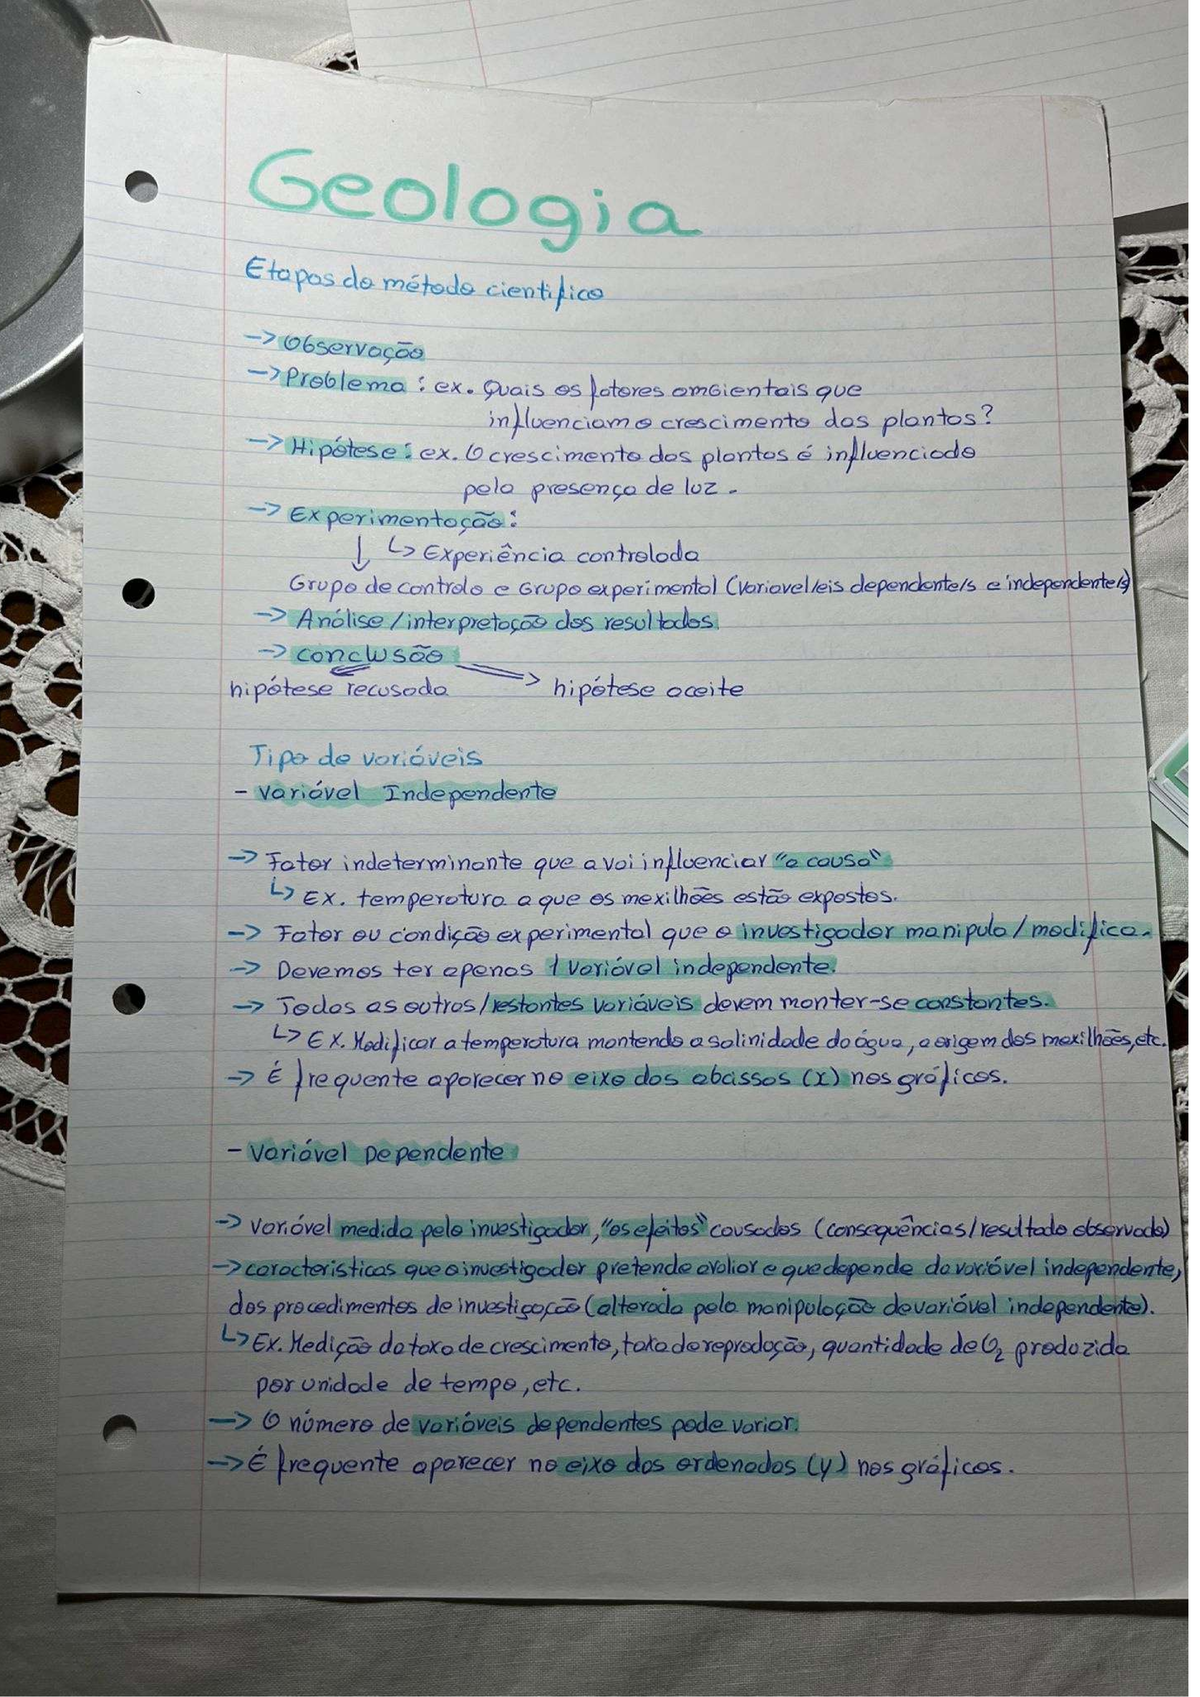 Geologia
Etapas do método cientifico
-> Observação
-> Problema : ex. Quais os fatores ambientais que
influenciam o crescimento das plantas?
-> Hipótese : ex. O crescimento das plantas é influenciado
pela presença de luz.
-> Experimentação :
↓ ↳ Experiência controlada
Grupo de controlo e Grupo experimental (Variavel/eis dependente/s e independente/s)
-> Análise / interpretação dos resultados.
-> conclusão
hipótese recusada => hipótese aceite
Tipo de variáveis
- Variável Independente
-> Fator indeterminante que a vai influenciar "a causa"
↳ Ex. temperatura a que os mexilhões estão expostos.
-> Fator ou condição experimental que o investigador manipula / modifica.
-> Devemos ter apenas 1 Variável independente.
-> Todas as outras / restantes Variáveis devem manter-se constantes.
↳ Ex. Modificar a temperatura mantendo a salinidade da água, a origem dos mexilhões, etc.
-> É frequente aparecer no eixo das abcissas (x) nos gráficos.
- Variável Dependente
-> Variável medida pelo investigador, "os efeitos" causados (consequências / resultado observado)
-> caracteristicas que o investigador pretende avaliar e que depende da variável independente,
dos procedimentos de investigação (alterada pela manipulação de variável independente).
↳ Ex. Medição da taxa de crescimento, taxa de reprodução, quantidade de O₂ produzida
por unidade de tempo, etc.
-> O número de variáveis dependentes pode variar.
-> É frequente aparecer no eixo das ordenadas (y) nos gráficos.